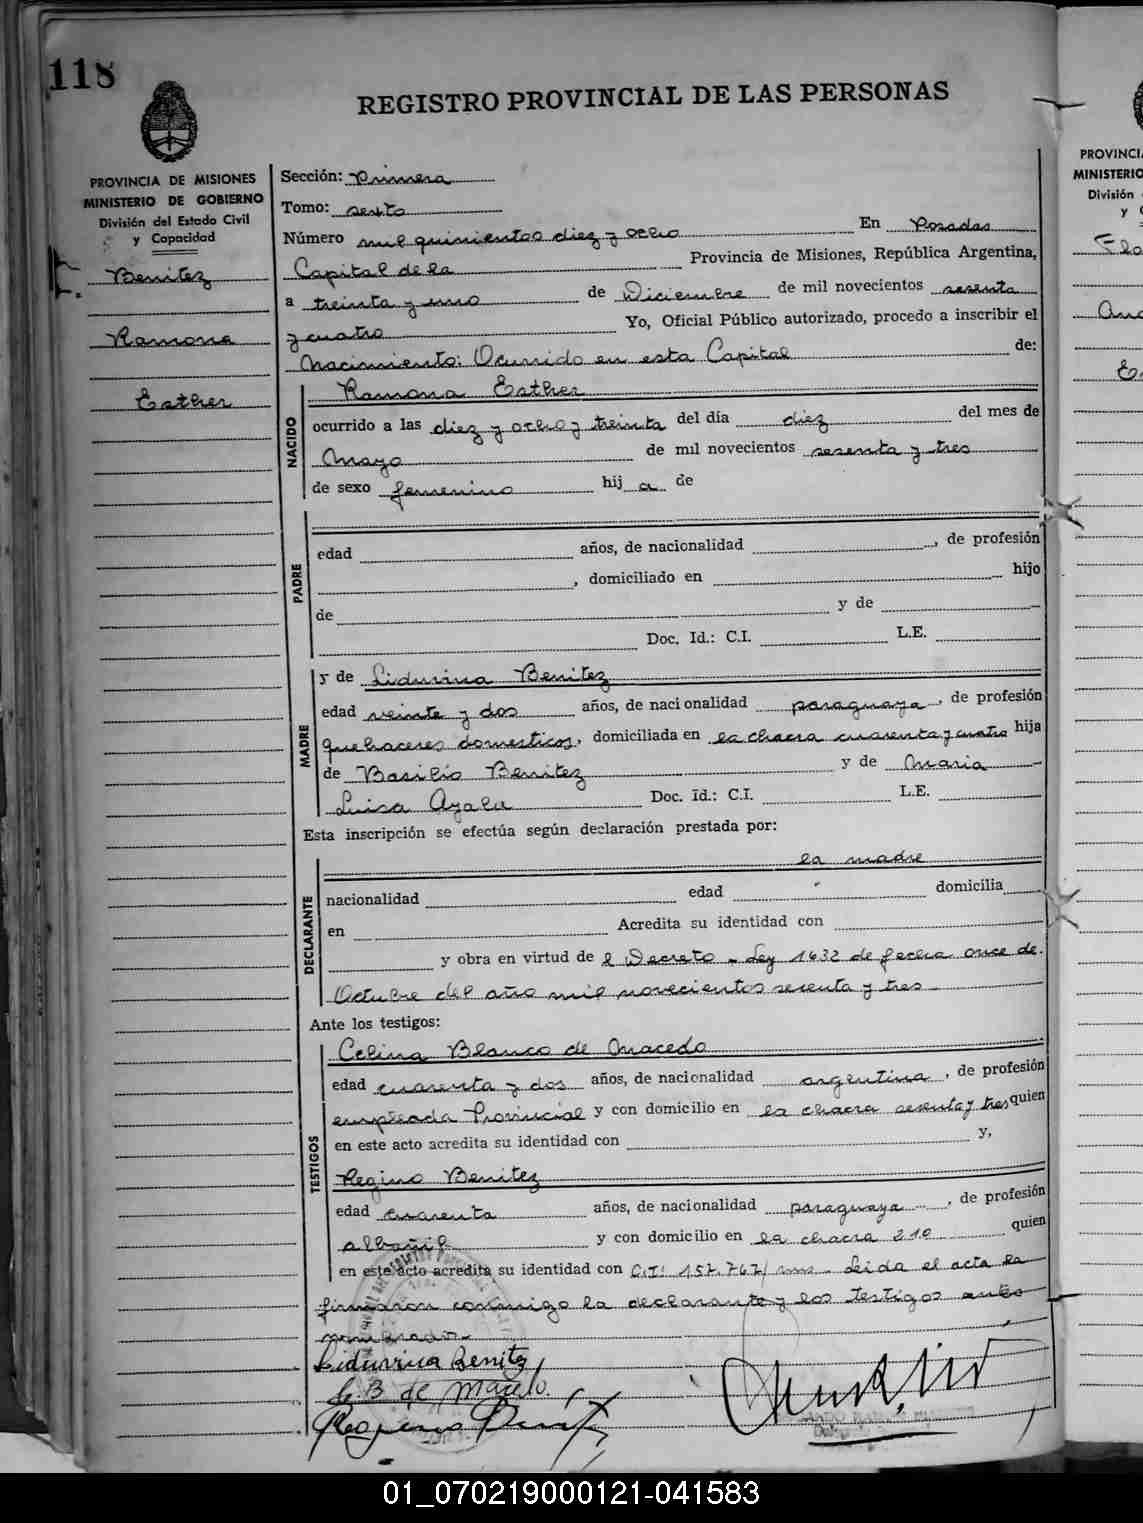 118
REGISTRO PROVINCIAL DE LAS PERSONAS
PROVINCIA DE MISIONES
MINISTERIO DE GOBIERNO
División del Estado Civil
y Capacidad
Benitez
Ramona
Esther
Sección: Primera
Tomo: sexto
Número mil quinientos diez y ocho En Posadas
Capital de la Provincia de Misiones, República Argentina,
a treinta y uno de Diciembre de mil novecientos sesenta
y cuatro Yo, Oficial Público autorizado, procedo a inscribir el
Nacimiento: Ocurrido en esta Capital de:
NACIDO
Ramona Esther
ocurrido a las diez y ocho y treinta del día diez del mes de
Mayo de mil novecientos sesenta y tres
de sexo femenino hij a de
PADRE
edad años, de nacionalidad , de profesión
, domiciliado en hijo
de y de
Doc. Id.: C.I. L.E.
MADRE
y de Lidurina Benitez
edad veinte y dos años, de nacionalidad paraguaya, de profesión
quehaceres domesticos, domiciliada en la chacra cuarenta y cuatro hija
de Basilio Benitez y de Maria
Luisa Ayala Doc. Id.: C.I. L.E.
Esta inscripción se efectúa según declaración prestada por:
DECLARANTE
la madre
nacionalidad edad domicilia
en Acredita su identidad con
y obra en virtud de l Decreto - Ley 1632 de fecha once de
Octubre del año mil novecientos sesenta y tres
Ante los testigos:
TESTIGOS
Celina Blanco de Macedo
edad cuarenta y dos años, de nacionalidad argentina, de profesión
empleada Provincial y con domicilio en la chacra sesenta y tres quien
en este acto acredita su identidad con y,
Regino Benitez
edad cuarenta años, de nacionalidad paraguaya, de profesión
albañil y con domicilio en la chacra 210 quien
en este acto acredita su identidad con C.I: 157.767/ mns. Leida el acta la
firmaron conmigo la declarante y los testigos ante
nombrados.-
Lidurina Benitez
C. B de Macedo.
PROVINCI
MINISTERIO
División
y
Flo
E
01_070219000121-041583